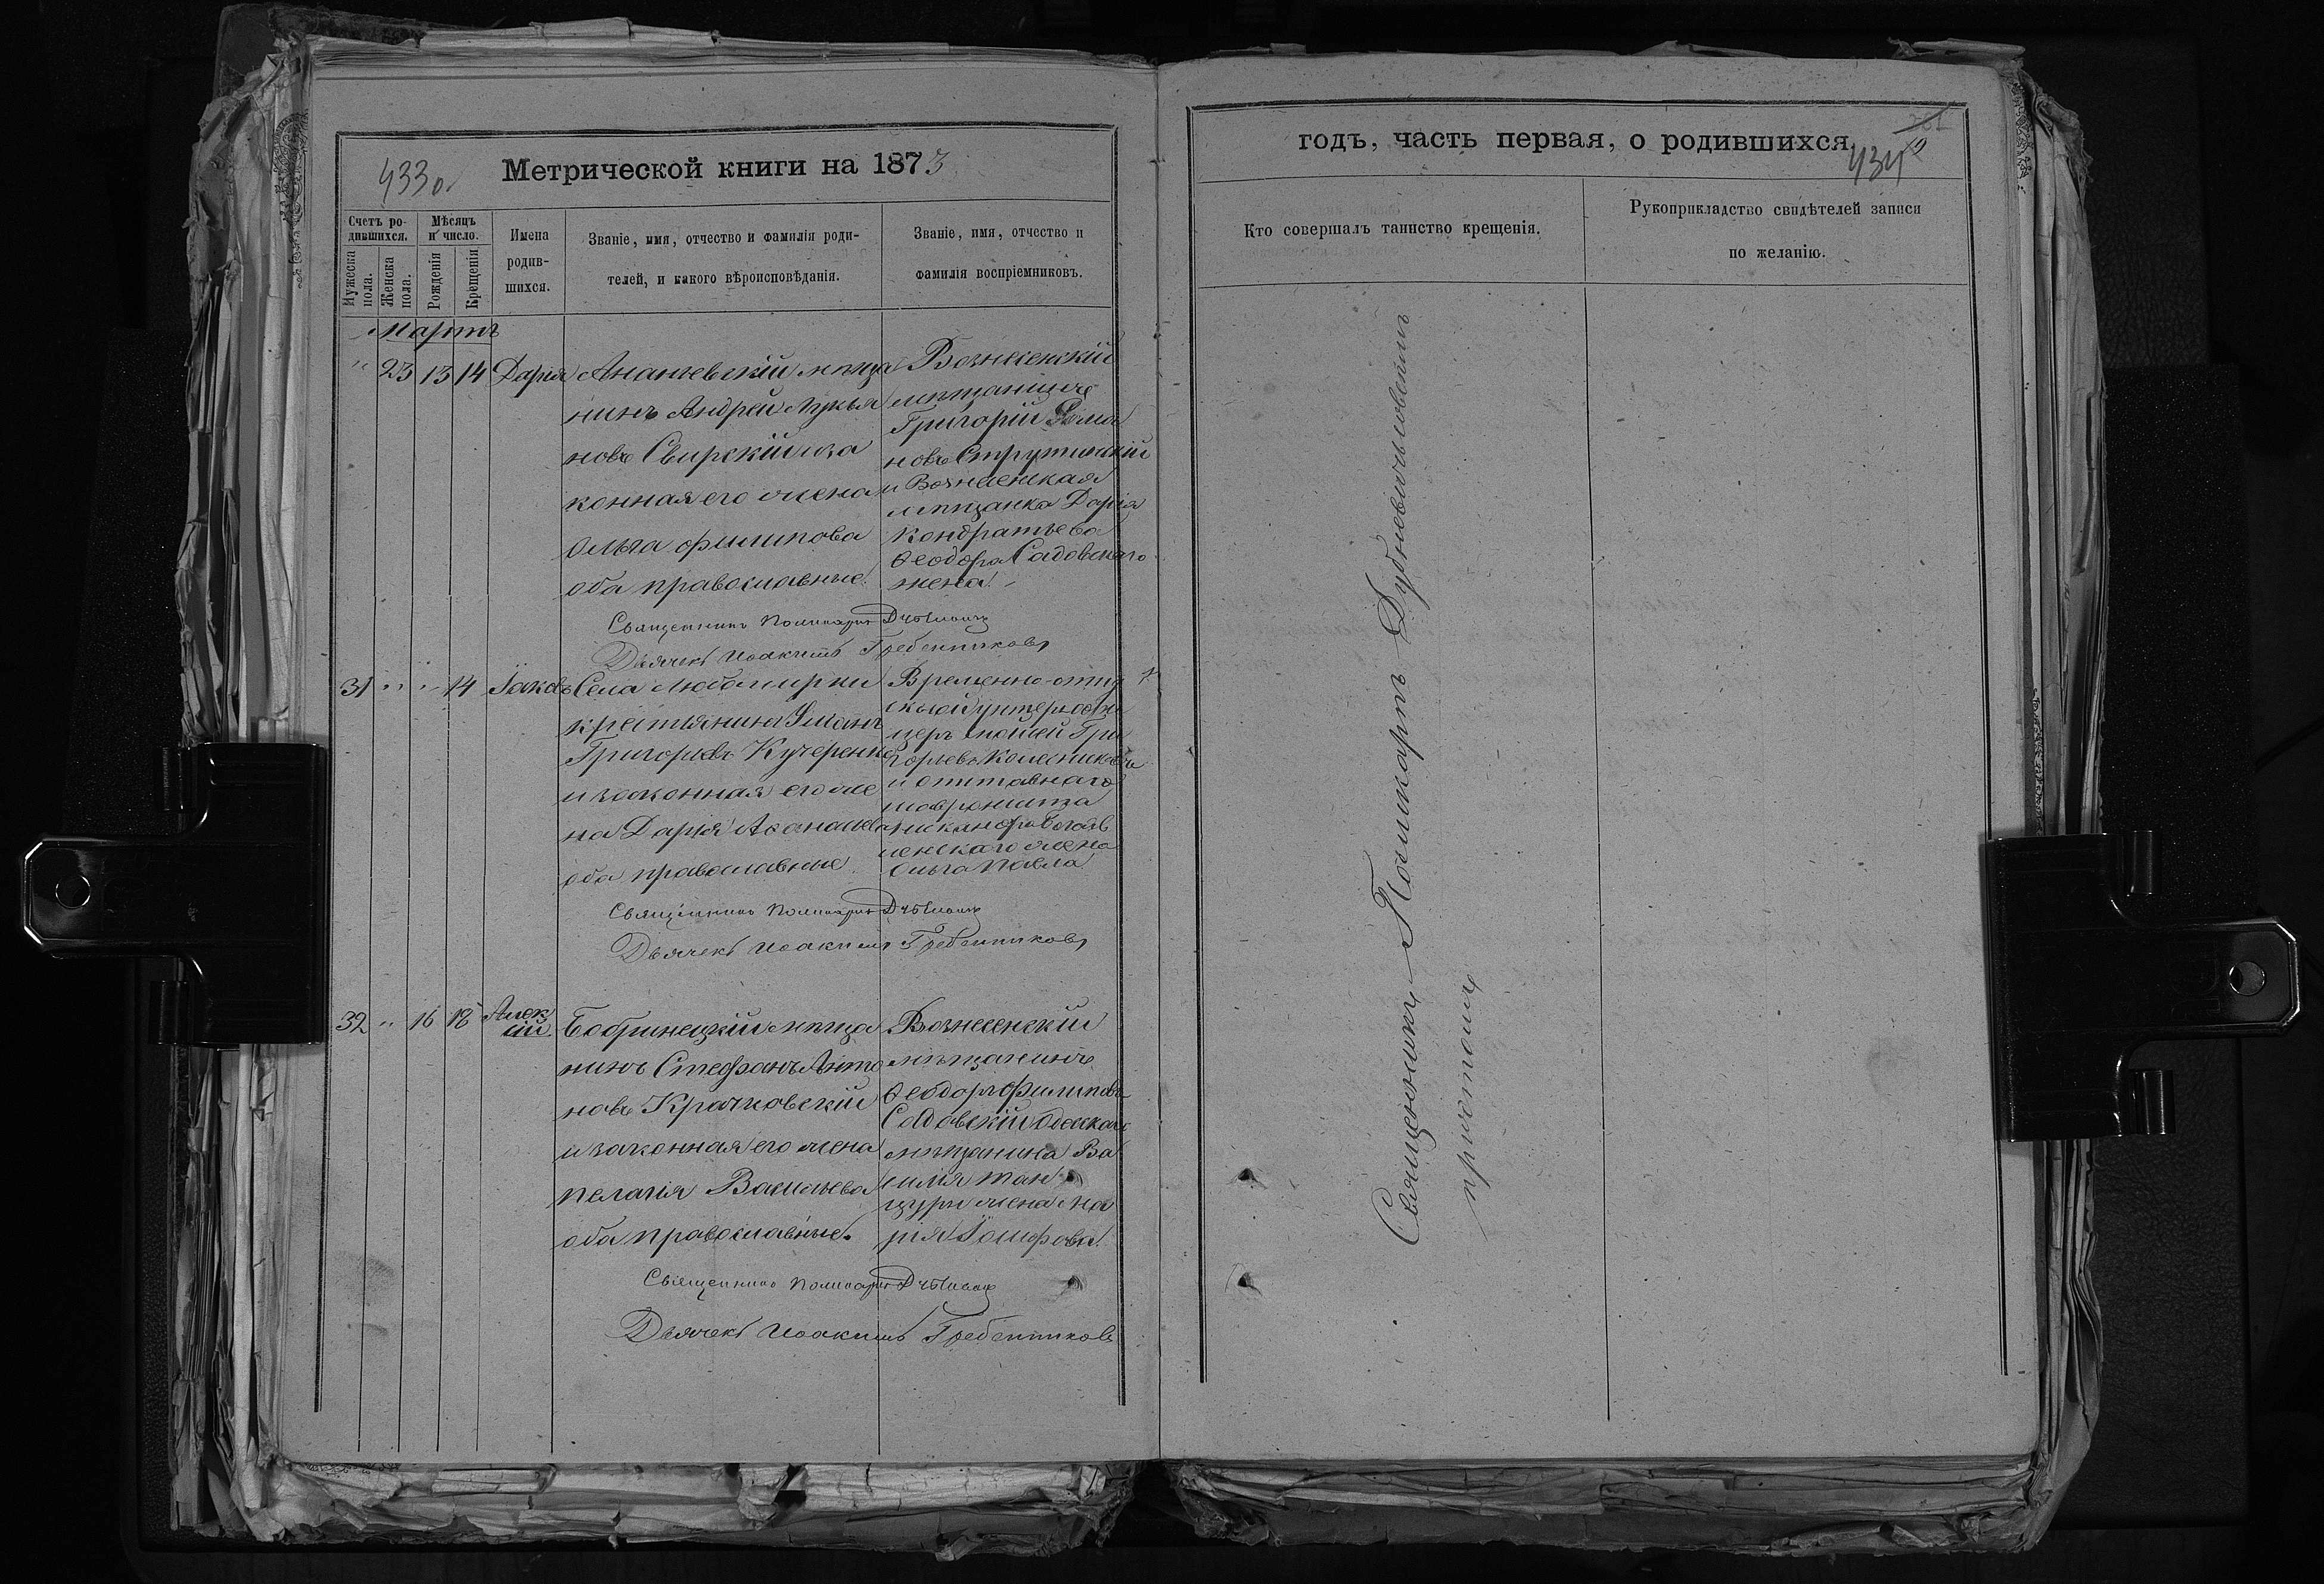 433 о.
Метрической книги на 1873
Счетъ ро-
дившихся.
Мужеска
пола.
Женска
пола.
Мѣсяцъ
и число.
Рожденія
Крещенія
Имена
родив-
шихся.
Званіе, имя, отчество и фамилія роди-
телей, и какого вѣроисповѣданія.
Званіе, имя, отчество и
фамилія воспріемниковъ.
Мартъ
" 23 13 14 Дарія
Ананьевскій мѣща
нинъ Андрей Лукья
новъ Свирскій и за
конная его жена
Ольга Филипова
оба православные.
Вознесенскій
мѣщанинъ
Григорій Рома
новъ Струтинскій
и Вознесенская
мѣщанка Дарія
Кондратьева
Ѳеодора Садовскаго
жена.
Священникъ Поликарпъ
Дьячекъ Иоакимъ Гребенниковъ
31 " " 14 Іаковъ
Села Любомирки
крестьянинъ
Григорьевъ Кучеренко
и законная его же
на Дарія Аѳанасьева
оба православные
Временно-отпу
скной унтеръ-офи
церъ Гри
горьевъ Колесниковъ
и отставнаго
жена
Ольга Павла
Священникъ Поликарпъ
Дьячекъ Иоакимъ Гребенниковъ
32 " 16 18 Алек
сій
Бобринецкій мѣща
нинъ Стефанъ Анто
новъ Крачковскій
и законная его жена
Пелагія Васильева
оба православные.
Вознесенскій
мѣщанинъ
Ѳеодоръ Филиповъ
Садовскій Одескаго
мѣщанина Ва
силія Ман
цуры жена Ма
рія Іосифова.
Священникъ Поликарпъ
Дьячекъ Иоакимъ Гребенниковъ
годъ, часть первая, о родившихся.
434
Кто совершалъ таинство крещенія.
Рукоприкладство свидѣтелей записи
по желанію.
Священникъ Поликарпъ Дубневичъ съ
причтомъ